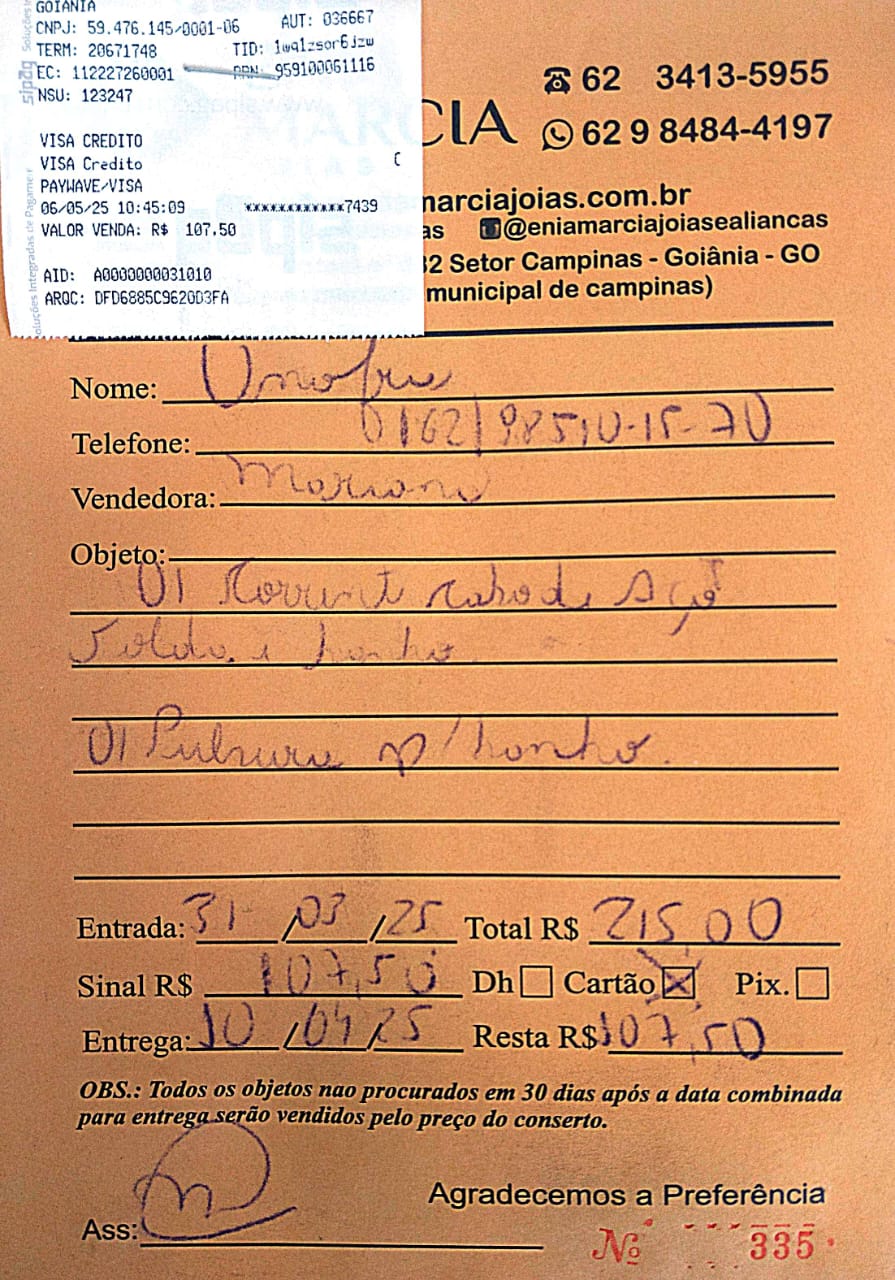 GOIANIA
CNPJ: 59.476.145/0001-06 AUT: 036667
TERM: 20671748 TID: 1wq1zsor6jzw
EC: 112227260001 ARN: 959100061116
NSU: 123247
VISA CREDITO
VISA Credito C
PAYWAVE/VISA
06/05/25 10:45:09 ************7439
VALOR VENDA: R$ 107.50
AID: A0000000031010
ARQC: DFD6885C9620D3FA
sipag Soluções Integradas de Pagamen
62 3413-5955
MARCIA 62 9 8484-4197
marciajoias.com.br
as @eniamarciajoiasealiancas
32 Setor Campinas - Goiânia - GO
municipal de campinas)
Nome: Onofre
Telefone: 0162) 98510-15-70
Vendedora: Mariana
Objeto:
01 Corrent Cabo de Aço
Solda e banho
01 Pulseira p/ banho.
Entrada: 31/03/25 Total R$ 215,00
Sinal R$ 107,50 Dh Cartão X Pix.
Entrega: 10/04/25 Resta R$ 107,50
OBS.: Todos os objetos nao procurados em 30 dias após a data combinada
para entrega serão vendidos pelo preço do conserto.
Agradecemos a Preferência
Ass:
Nº 335